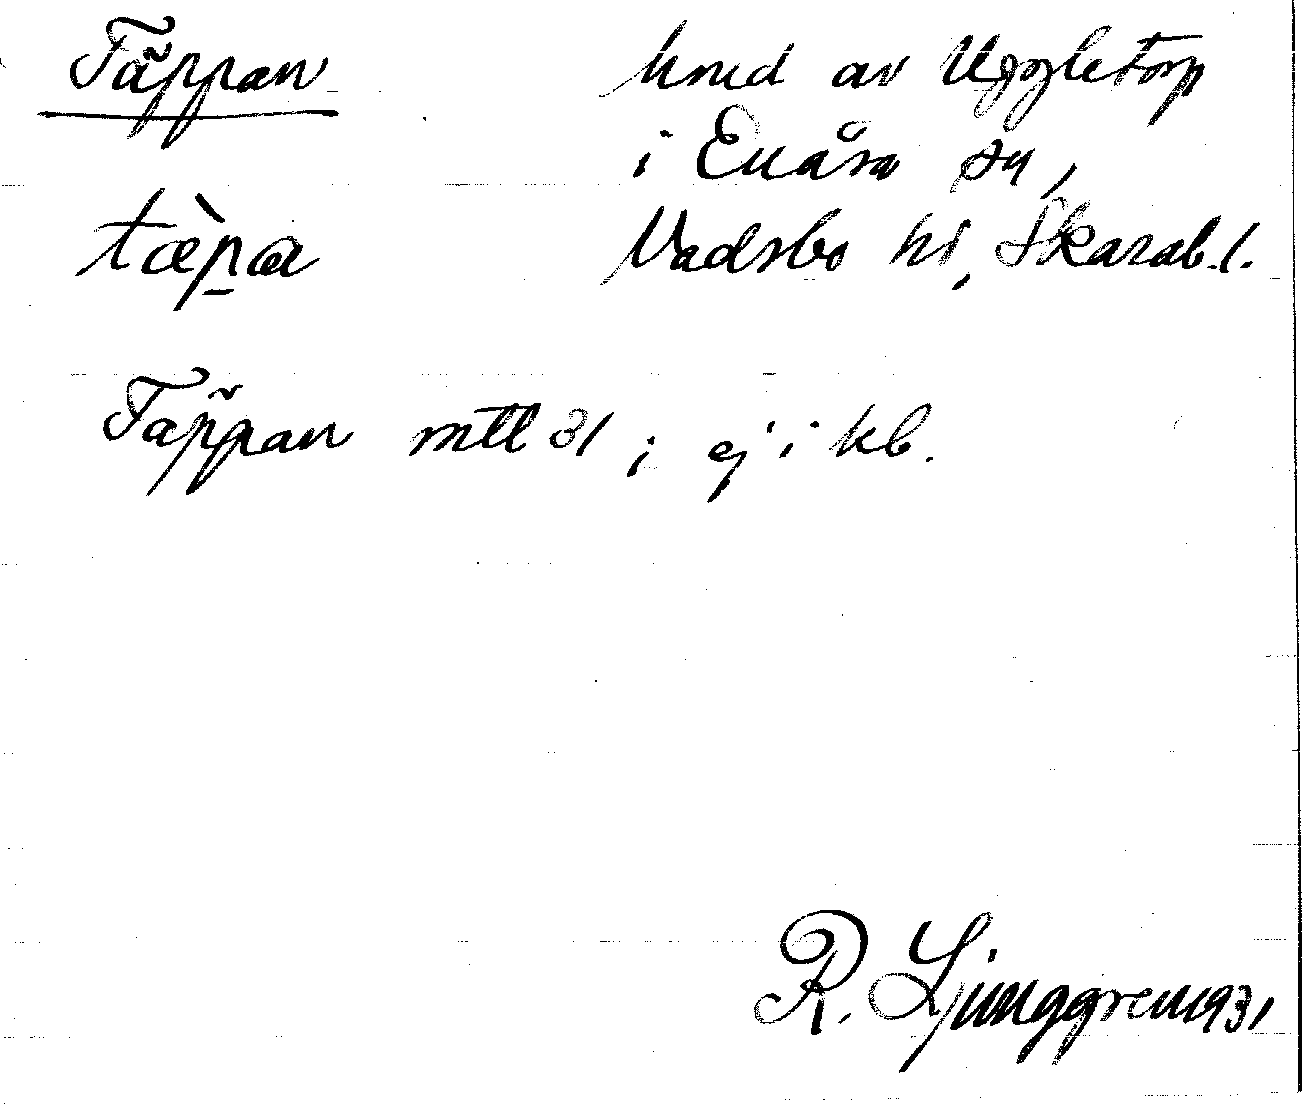 Täppan
hmd av Uggletorp
i Enåsa sn,
tæ̀pa
Vadsbo hd, Skarab. l.
Täppan mtl 31; ej i kb.
R. Ljunggren 1931